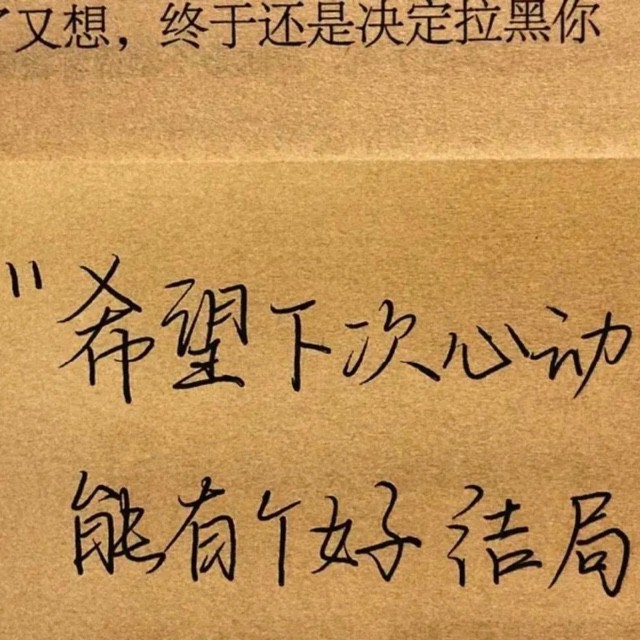 了又想，终于还是决定拉黑你
"希望下次心动
能有个好结局